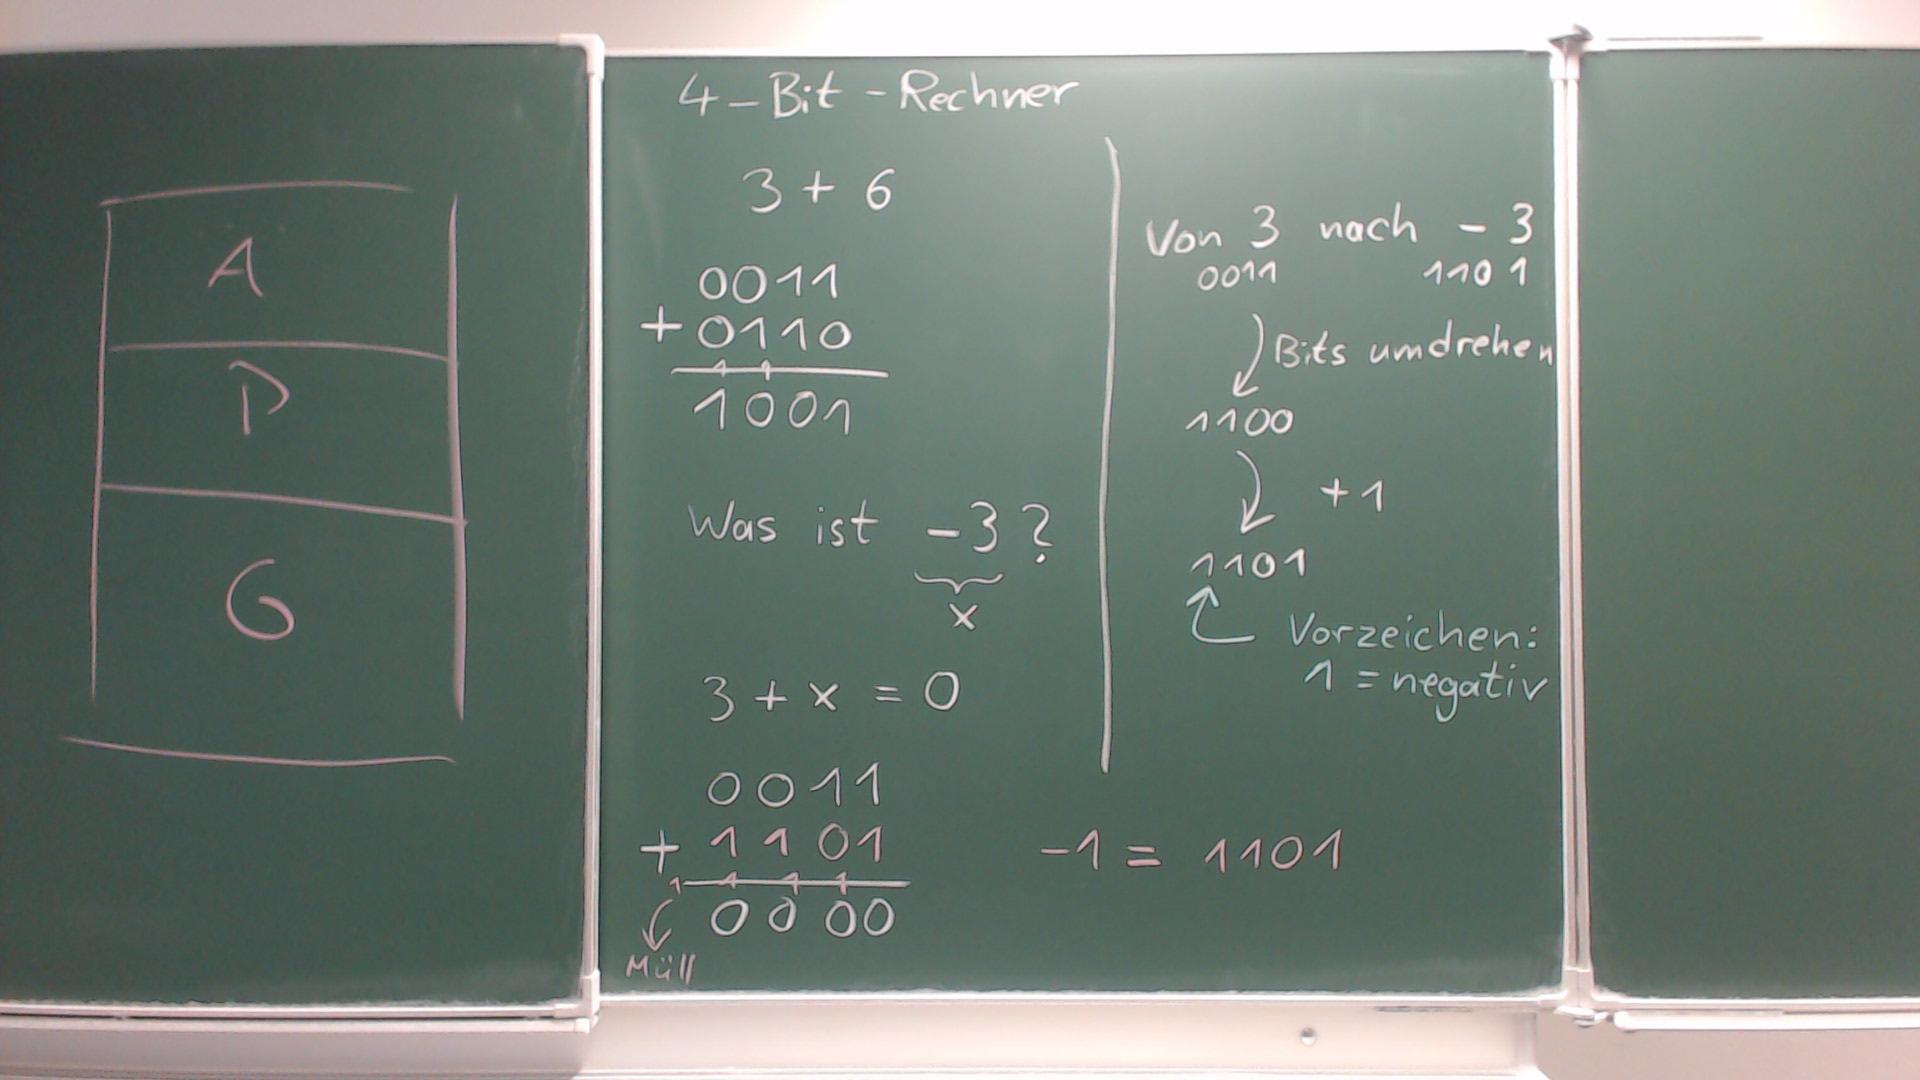 A
D
G
4-Bit-Rechner
3 + 6
0011
+ 0110
1 1
1001
Was ist -3?
x
3 + x = 0
0011
+ 1101
1 1 1 1
0000
Müll
Von 3 nach - 3
0011 1101
Bits umdrehen
1100
+1
1101
Vorzeichen:
1 = negativ
-1 = 1101